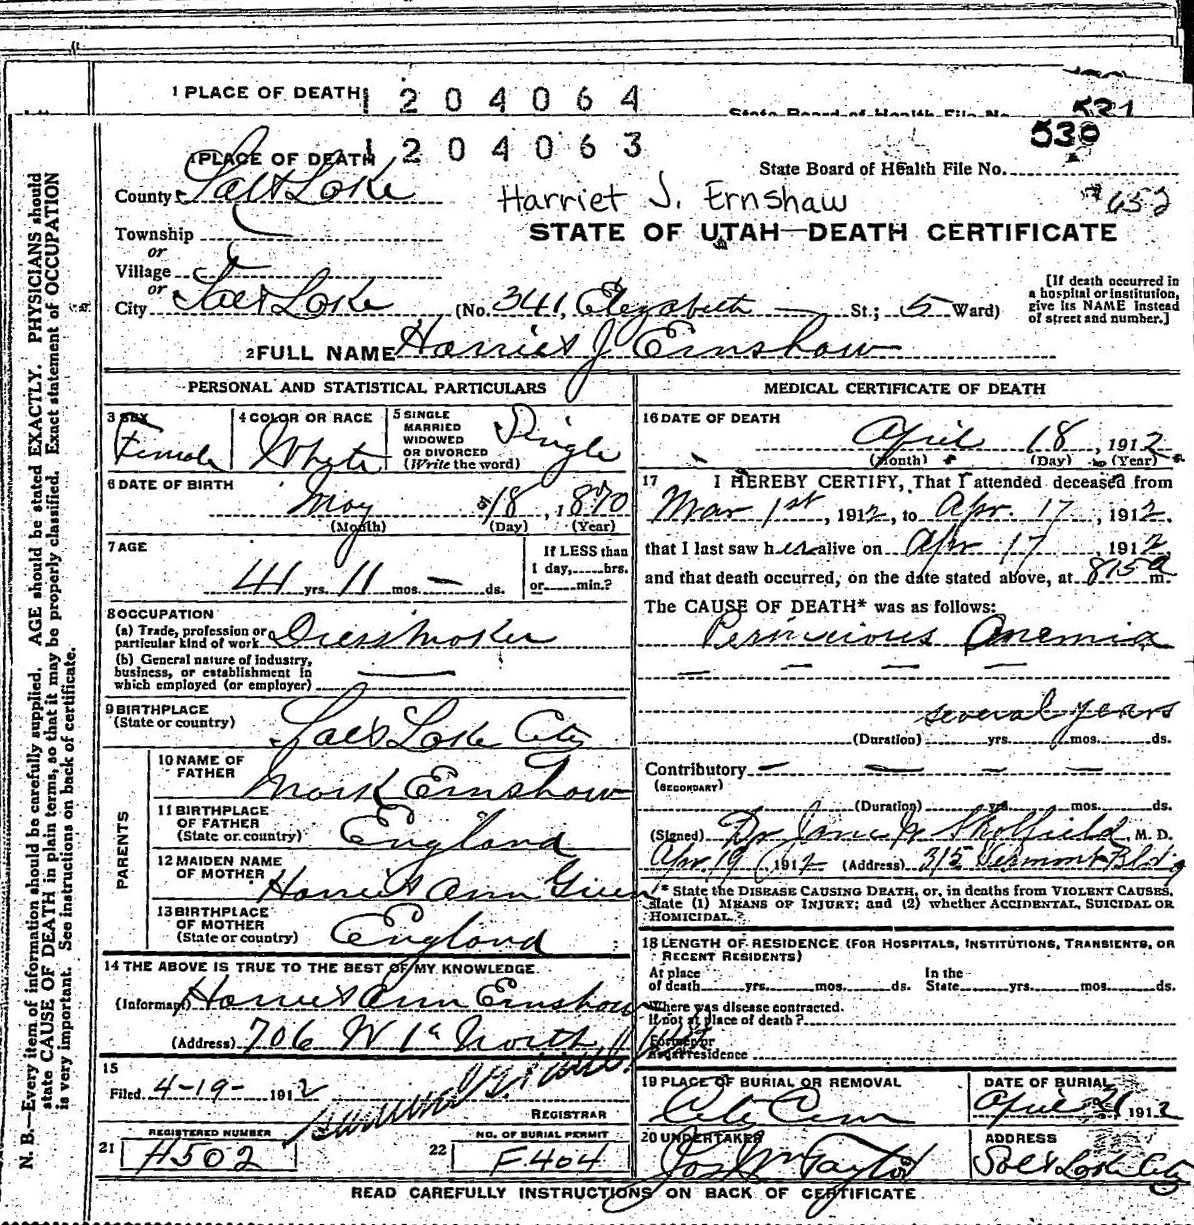 1 PLACE OF DEATH 1 2 0 4 0 6 4
State Board of Health File No. 531
1 PLACE OF DEATH 1 2 0 4 0 6 3
530
State Board of Health File No.
County Salt Lake
Harriet J. Ernshaw
#652
Township
STATE OF UTAH—DEATH CERTIFICATE
or
Village
or
City Salt Lake (No. 341, Elizabeth St.; 5 Ward)
[If death occurred in
a hospital or institution,
give its NAME instead
of street and number.]
2 FULL NAME Harriet J Ernshaw
PERSONAL AND STATISTICAL PARTICULARS
3 SEX Female
4 COLOR OR RACE White
5 SINGLE
MARRIED
WIDOWED
OR DIVORCED
(Write the word) Single
6 DATE OF BIRTH
May 18, 1870
(Month) (Day) (Year)
7 AGE
41 yrs. 11 mos. — ds.
If LESS than
1 day, hrs.
or min.?
8 OCCUPATION
(a) Trade, profession or
particular kind of work Dressmaker
(b) General nature of industry,
business, or establishment in
which employed (or employer) —
9 BIRTHPLACE
(State or country) Salt Lake City
PARENTS
10 NAME OF
FATHER Mark Ernshaw
11 BIRTHPLACE
OF FATHER
(State or country) England
12 MAIDEN NAME
OF MOTHER Harriet Ann
13 BIRTHPLACE
OF MOTHER
(State or country) England
14 THE ABOVE IS TRUE TO THE BEST OF MY KNOWLEDGE.
(Informant) Harriet Ann Ernshaw
(Address) 706 W 1st North
15
Filed 4-19- 1912
REGISTRAR
REGISTERED NUMBER
21 H502
NO. OF BURIAL PERMIT
22 F404
MEDICAL CERTIFICATE OF DEATH
16 DATE OF DEATH
April 18, 1912
(Month) (Day) (Year)
17 I HEREBY CERTIFY, That I attended deceased from
Mar 1st, 1912, to Apr. 17, 1912,
that I last saw her alive on Apr 17, 1912,
and that death occurred, on the date stated above, at 815 a m.
The CAUSE OF DEATH* was as follows:
Pernicious Anemia
— — — —
several years
(Duration) yrs. mos. ds.
Contributory — — — —
(SECONDARY)
(Duration) yrs. mos. ds.
(Signed) Dr Jane M. Skolfield M. D.
Apr 19, 1912 (Address) 315 Vermont Bldg
* State the DISEASE CAUSING DEATH, or, in deaths from VIOLENT CAUSES,
state (1) MEANS OF INJURY; and (2) whether ACCIDENTAL, SUICIDAL OR
HOMICIDAL.
18 LENGTH OF RESIDENCE (FOR HOSPITALS, INSTITUTIONS, TRANSIENTS, OR
RECENT RESIDENTS)
At place In the
of death yrs. mos. ds. State yrs. mos. ds.
Where was disease contracted.
if not at place of death?
Former or
usual residence
19 PLACE OF BURIAL OR REMOVAL
City Cem
DATE OF BURIAL
April 21 1912
20 UNDERTAKER
Jos Wm Taylor
ADDRESS
Salt Lake City
READ CAREFULLY INSTRUCTIONS ON BACK OF CERTIFICATE
N. B.—Every item of information should be carefully supplied. AGE should be stated EXACTLY. PHYSICIANS should
state CAUSE OF DEATH in plain terms, so that it may be properly classified. Exact statement of OCCUPATION
is very important. See instructions on back of certificate.